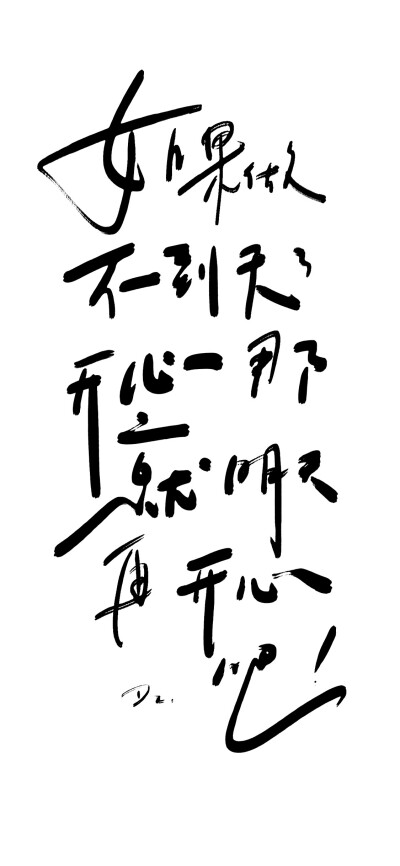 如果做
不到天天
开心 那
就明天
再开心
吧!
Dz.